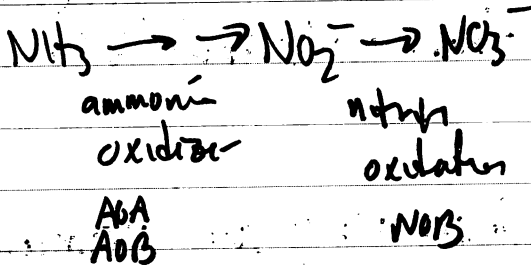 NH₃ → → NO₂⁻ → NO₃⁻
ammonia
oxidizer
nitrite
oxidation
AOA
AOB
NOB